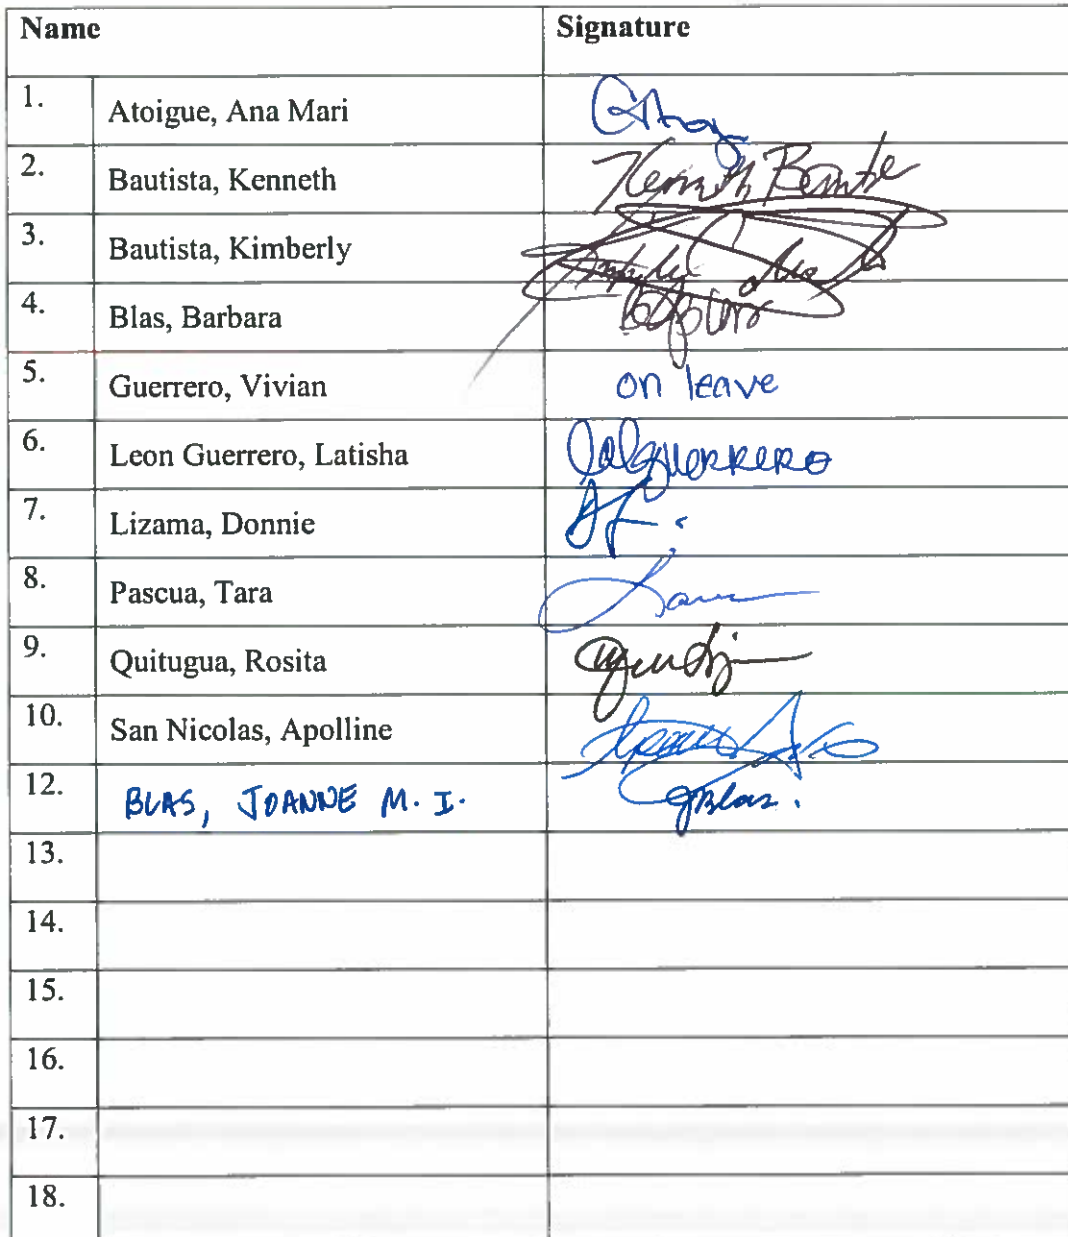 Name Signature
1. Atoigue, Ana Mari
2. Bautista, Kenneth Kenneth
3. Bautista, Kimberly
4. Blas, Barbara
5. Guerrero, Vivian on leave
6. Leon Guerrero, Latisha
7. Lizama, Donnie
8. Pascua, Tara
9. Quitugua, Rosita
10. San Nicolas, Apolline
12. BLAS, JOANNE M. I. JBlas.
13.
14.
15.
16.
17.
18.